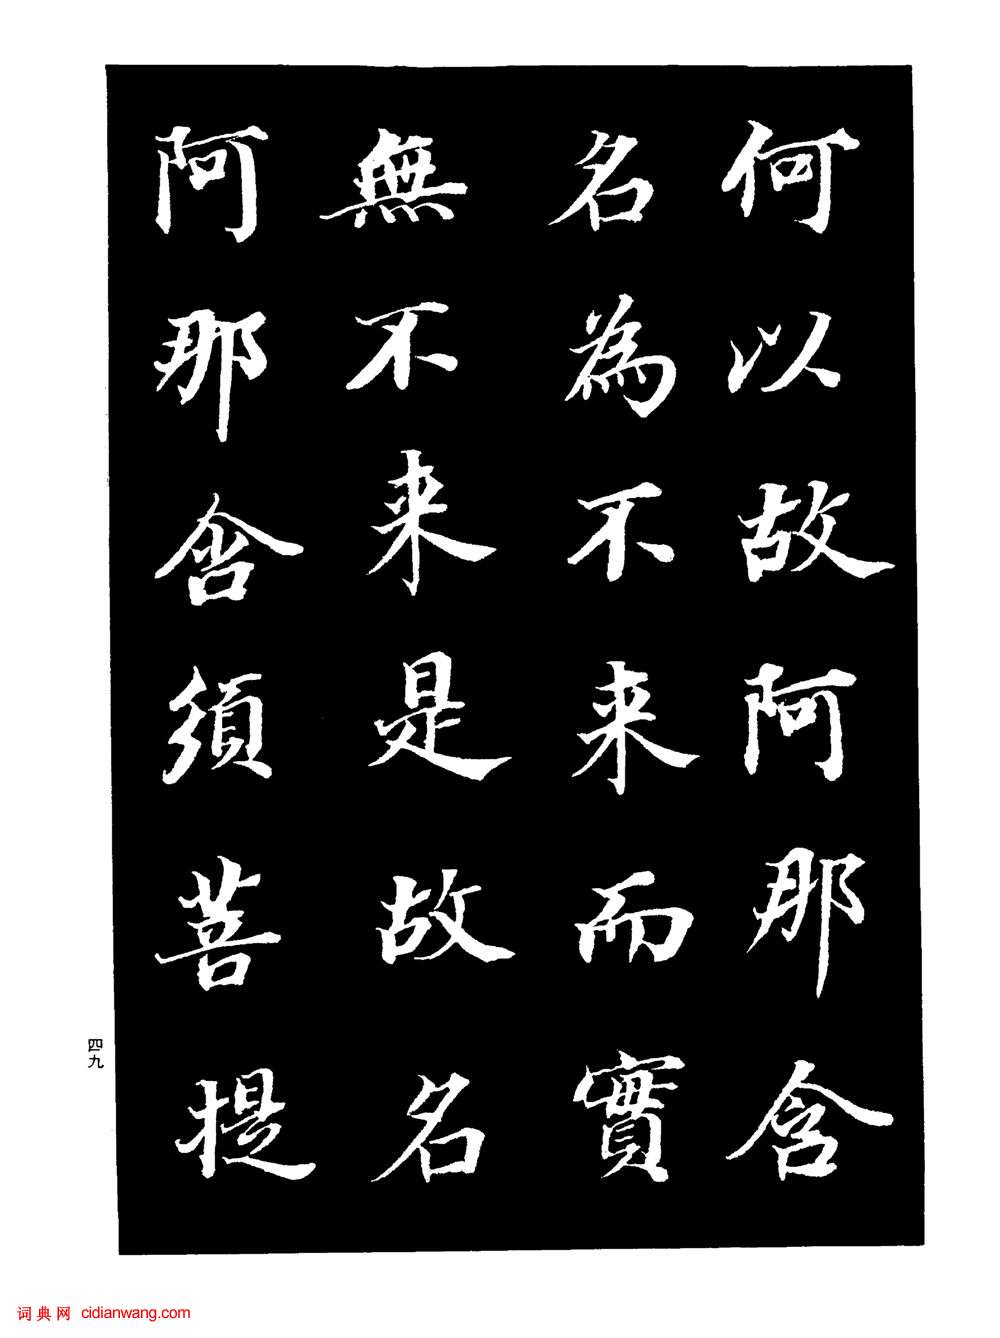 何以故阿那含
名為不来而實
無不来是故名
阿那含須菩提
四九
词典网 cidianwang.com